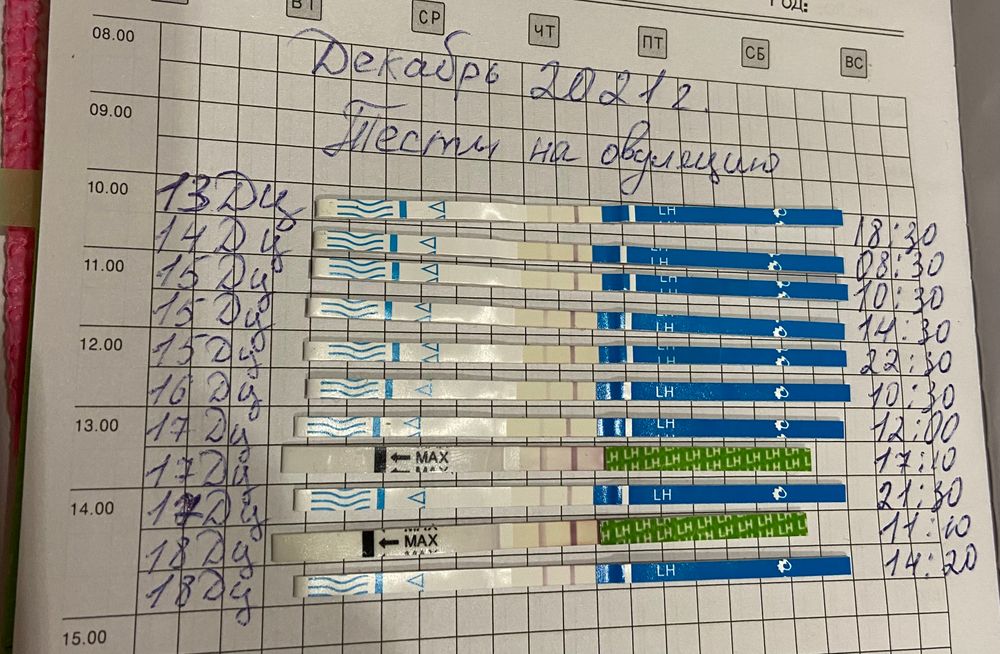 ГОД:
ВТ СР ЧТ ПТ СБ ВС
08.00
Декабрь 2021г.
09.00
Тесты на овуляцию
10.00
13 Дц LH 18:30
14 Дц LH 08:30
11.00
15 Дц LH 10:30
15 Дц LH 14:30
12.00
15 Дц LH 22:30
16 Дц LH 10:30
13.00
17 Дц LH 12:00
17 Дц MAX LH LH LH LH LH LH LH LH 17:10
14.00
17 Дц LH 21:30
18 Дц MAX LH LH LH LH LH LH LH LH 11:10
18 Дц LH 14:20
15.00